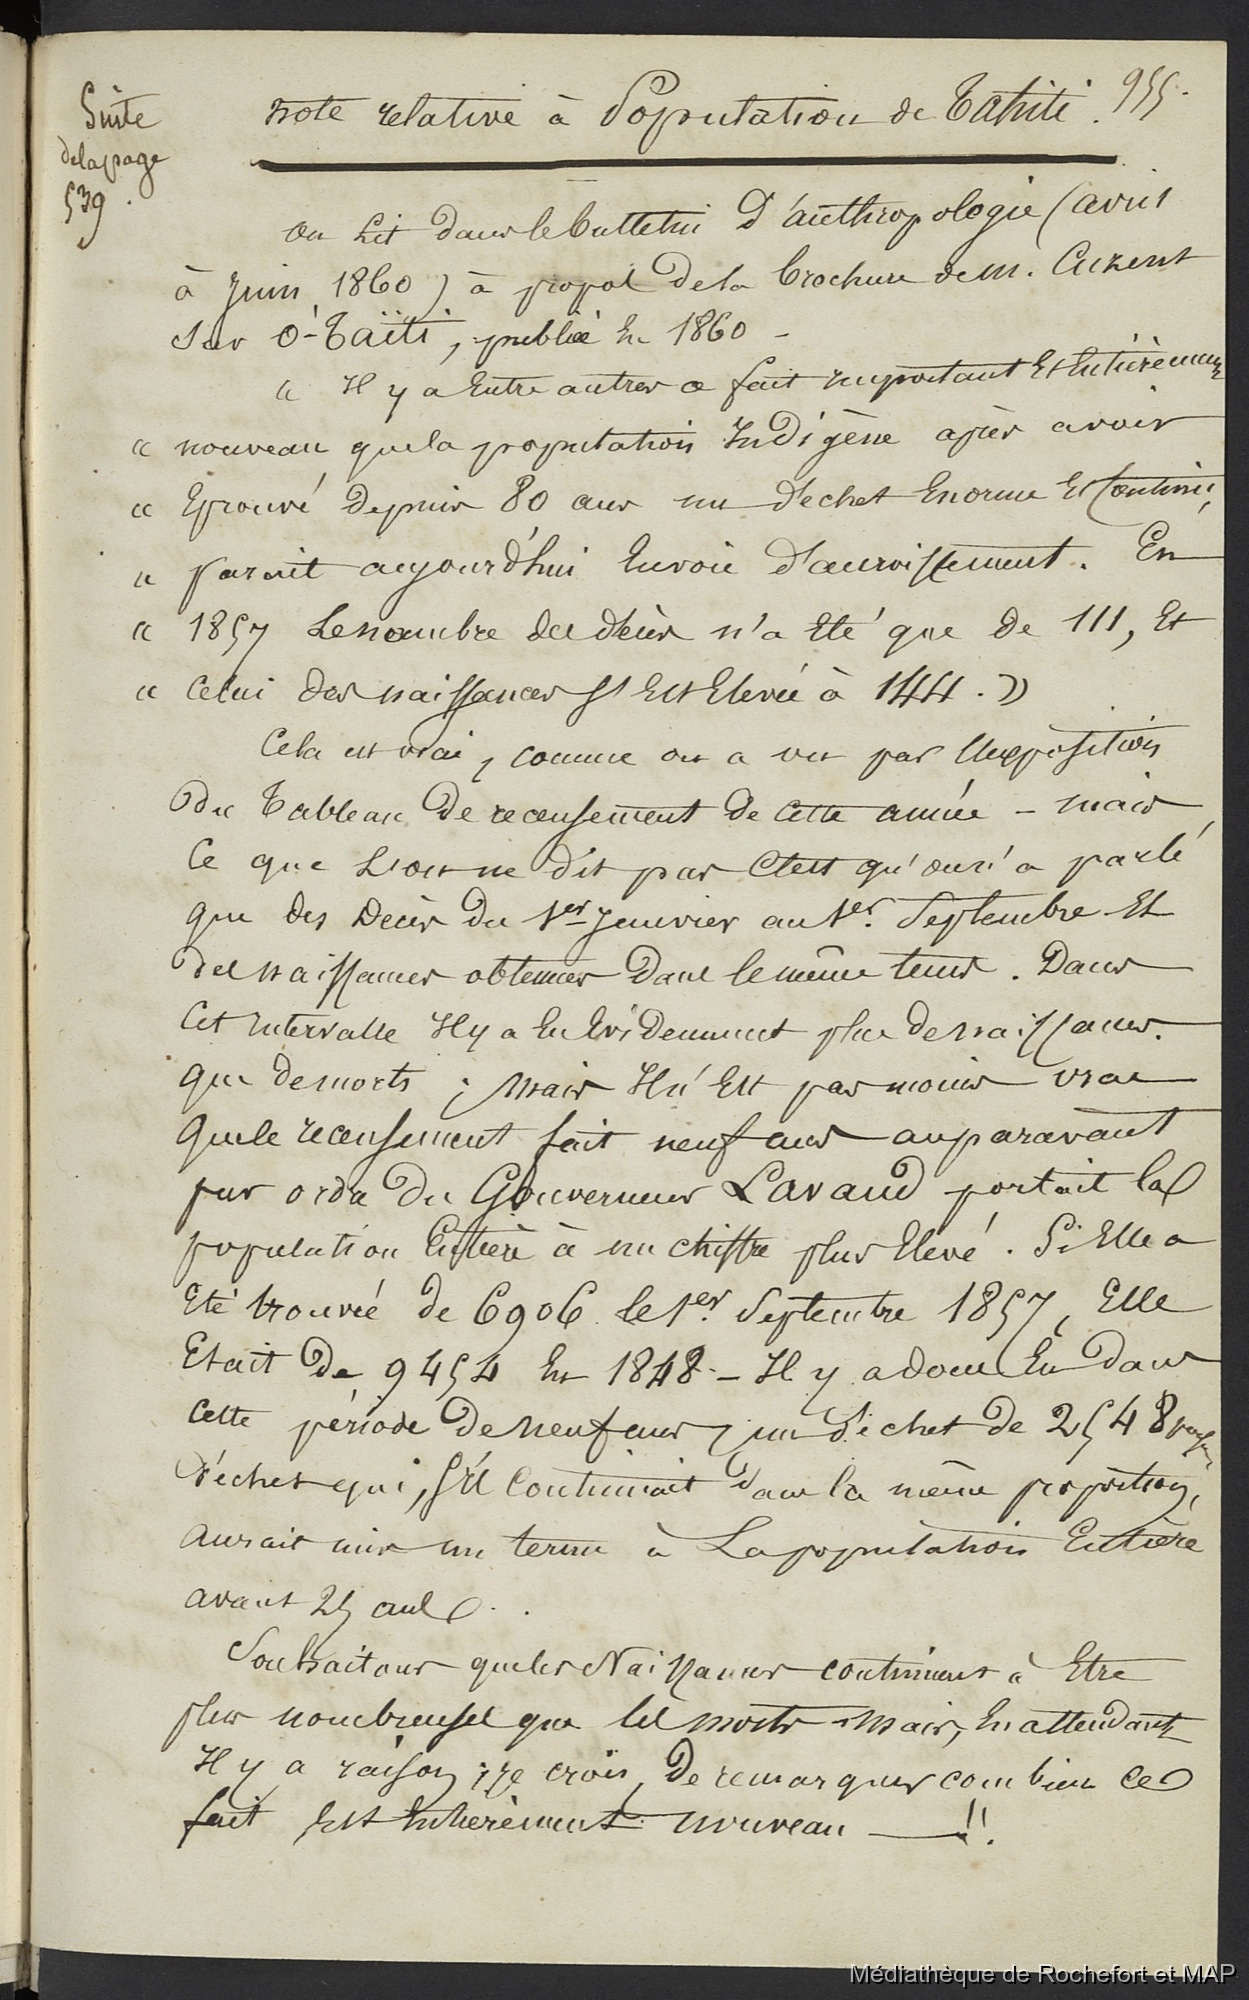 955.
Suite
de la page
539.
Note relative à Population de Tahiti.
On lit dans le bulletin D'anthropologie (avril
à Juin 1860) à propos de la brochure de M. Cuzent
sur O'-Taïti, publiée en 1860 -
« Il y a entre autres ce fait important et entièrement
« nouveau que la population Indigène après avoir
« Eprouvé depuis 80 ans un déchet Enorme et Continu,
« parait aujourd'hui en voie d'accroissement. En
« 1857 Le nombre des décès n'a été que de 111, Et
« Celui des naissances s'est Elevé à 144. »
Cela est vrai, comme on a vu par l'exposition
du Tableau De recensement de cette année - mais
Ce que L'on ne dit pas C'est qu'on n'a parlé
que des Décès du 1er Janvier au 1er. Septembre Et
des naissances obtenues dans le même tems. Dans
Cet intervalle Il y a eu Evidemment plus de naissances
que de morts ; Mais Il n'Est pas moins vrai
que le recensement fait neuf ans auparavant
par ordre du Gouverneur Lavaud portait la
population Entière à un chiffre plus Elevé. Si Elle a
Eté trouvée de 6906 le 1er. Septembre 1857, Elle
Etait De 9454 En 1848 - Il y a donc Eu dans
Cette période De neuf ans, un déchet de 2548
Déchet qui, s'il Continuait dans la même proportion,
aurait mis un terme à La population Entière
avant 25 ans.
Souhaitons que les Naissances continuent à Etre
plus nombreuses que les morts - Mais, En attendant
Il y a raison, je crois, De remarquer combien ce
fait Est Entièrement nouveau —!!.
Médiathèque de Rochefort et MAP